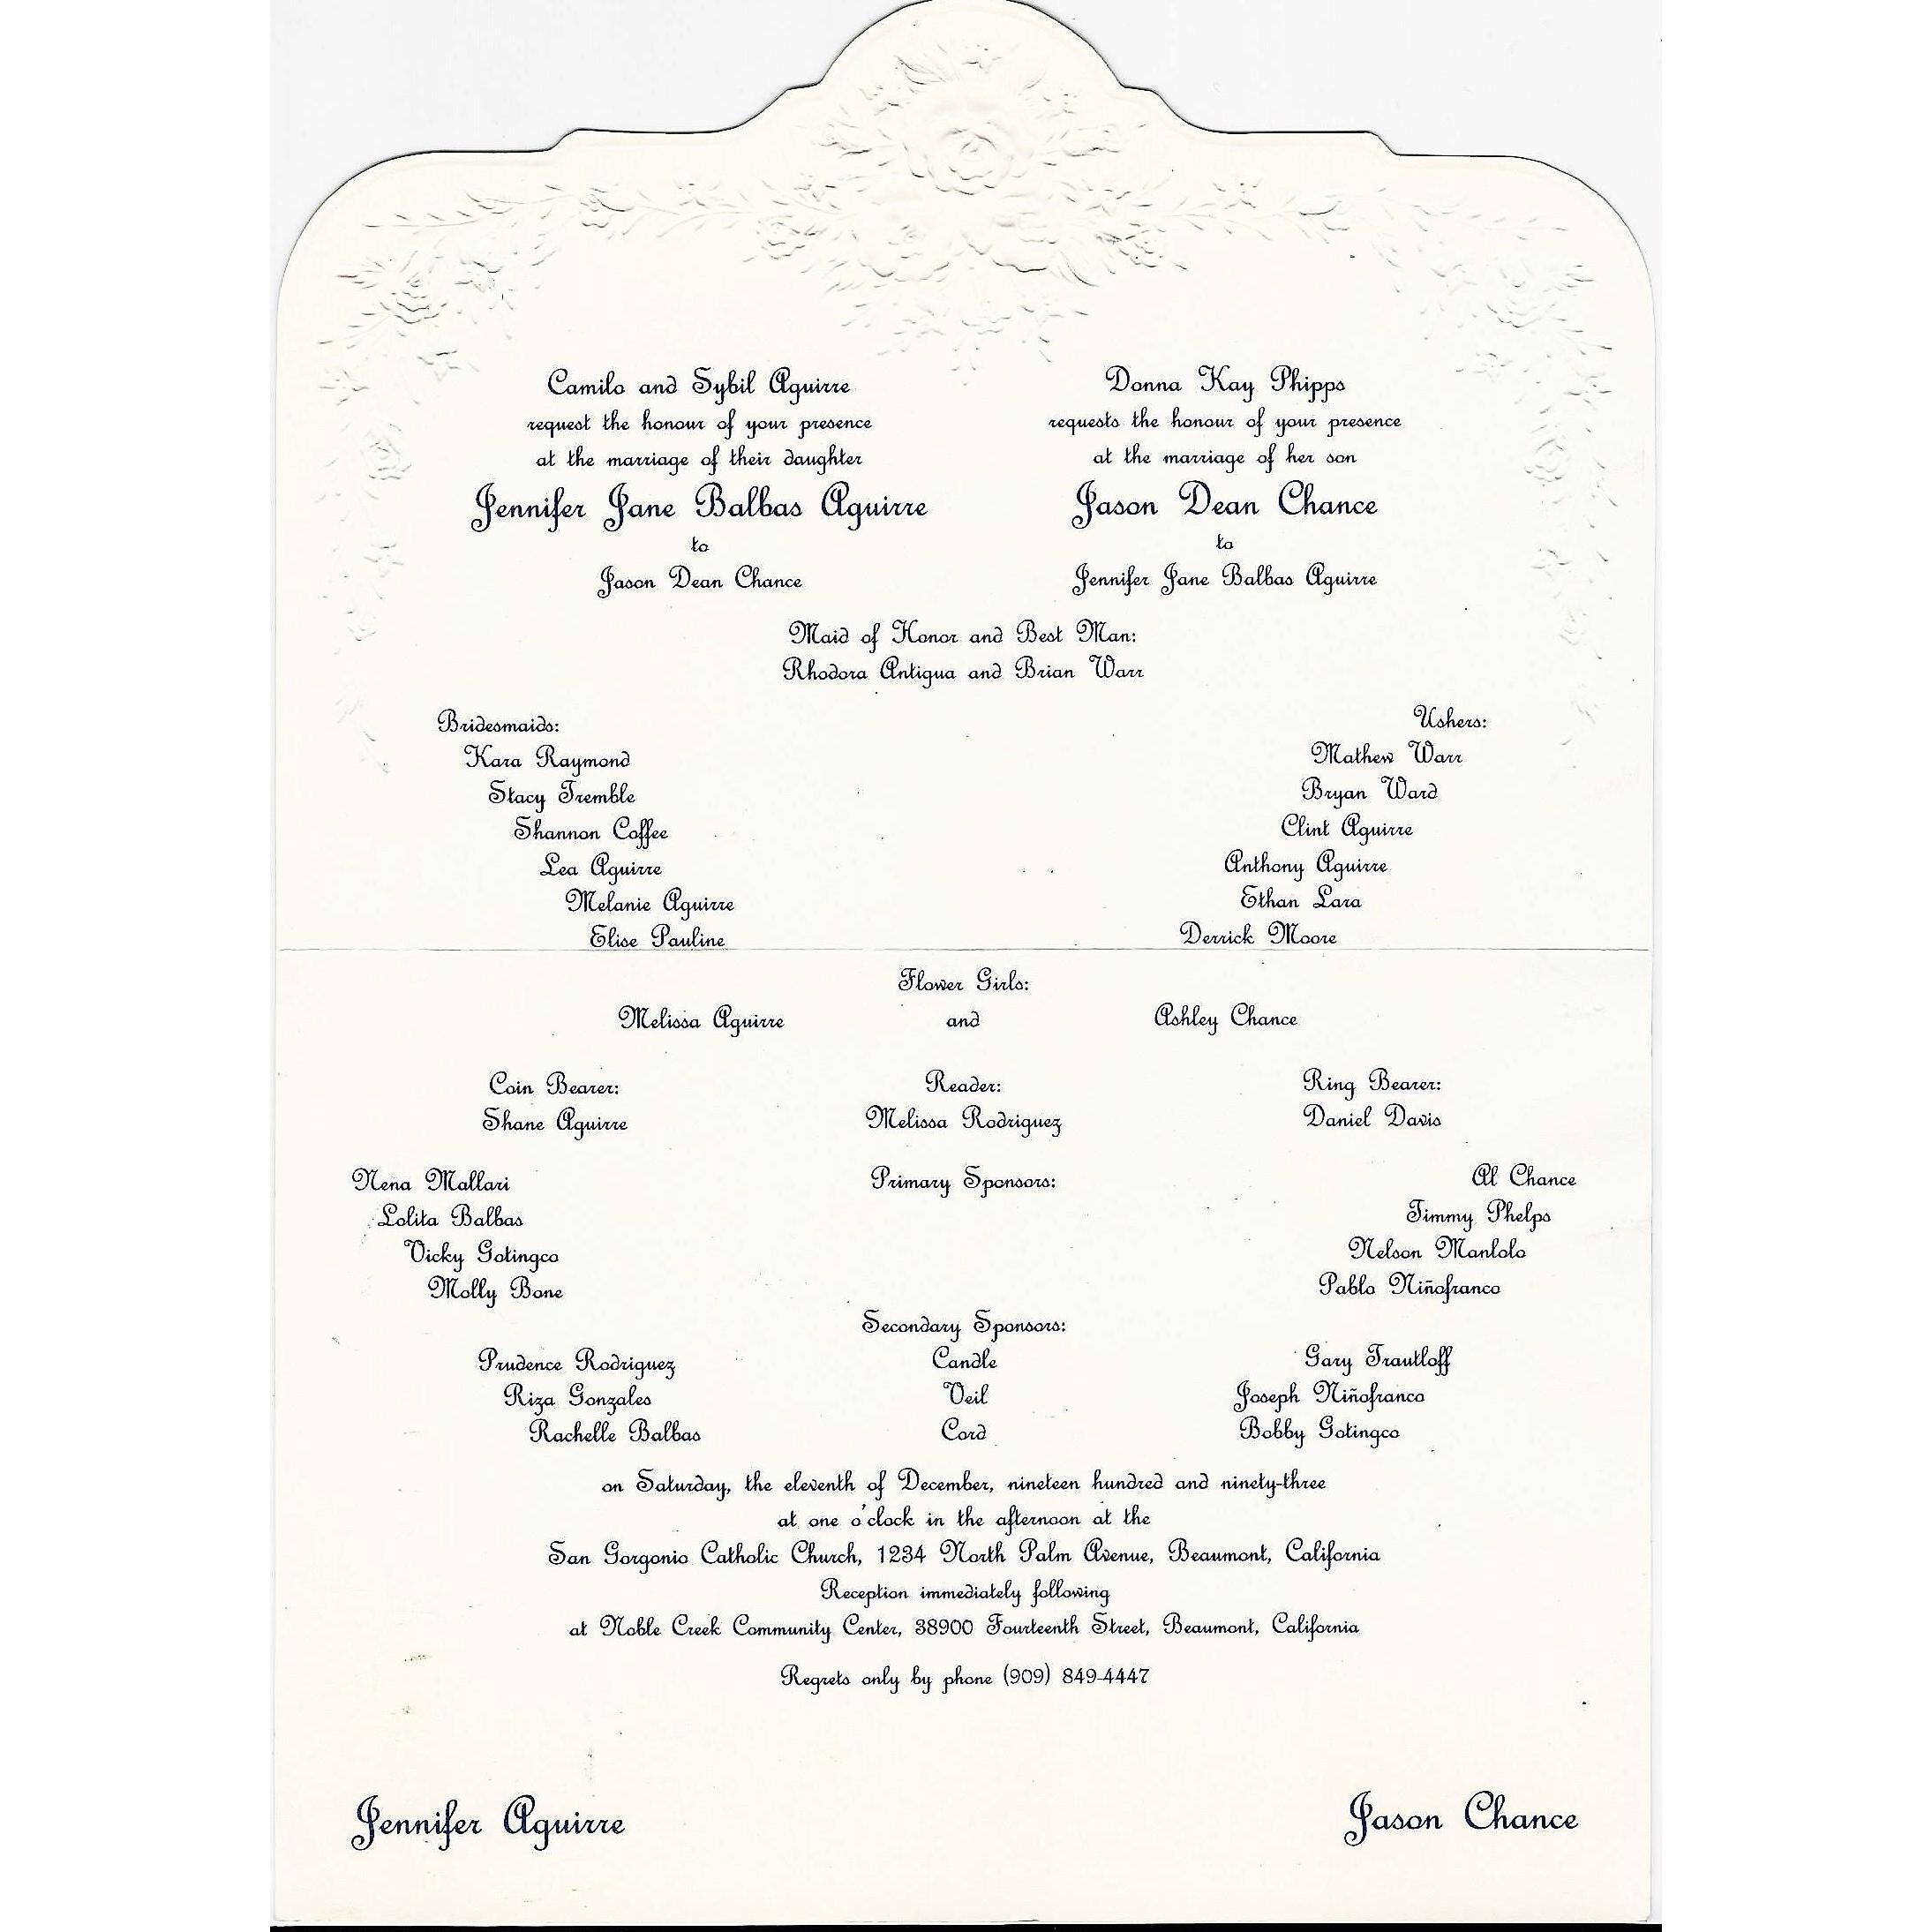 Camilo and Sybil Aguirre
request the honour of your presence
at the marriage of their daughter
Jennifer Jane Balbas Aguirre
to
Jason Dean Chance
Donna Kay Phipps
requests the honour of your presence
at the marriage of her son
Jason Dean Chance
to
Jennifer Jane Balbas Aguirre
Maid of Honor and Best Man:
Rhodora Antigua and Brian Warr
Bridesmaids:
Kara Raymond
Stacy Tremble
Shannon Coffee
Lea Aguirre
Melanie Aguirre
Elise Pauline
Ushers:
Mathew Warr
Bryan Ward
Clint Aguirre
Anthony Aguirre
Ethan Lara
Derrick Moore
Flower Girls:
Melissa Aguirre and Ashley Chance
Coin Bearer:
Shane Aguirre
Reader:
Melissa Rodriguez
Ring Bearer:
Daniel Davis
Primary Sponsors:
Nena Mallari
Lolita Balbas
Vicky Gotingco
Molly Bone
Al Chance
Timmy Phelps
Nelson Manlolo
Pablo Niñofranco
Secondary Sponsors:
Prudence Rodriguez Candle Gary Trautloff
Riza Gonzales Veil Joseph Niñofranco
Rachelle Balbas Cord Bobby Gotingco
on Saturday, the eleventh of December, nineteen hundred and ninety-three
at one o'clock in the afternoon at the
San Gorgonio Catholic Church, 1234 North Palm Avenue, Beaumont, California
Reception immediately following
at Noble Creek Community Center, 38900 Fourteenth Street, Beaumont, California
Regrets only by phone (909) 849-4447
Jennifer Aguirre
Jason Chance